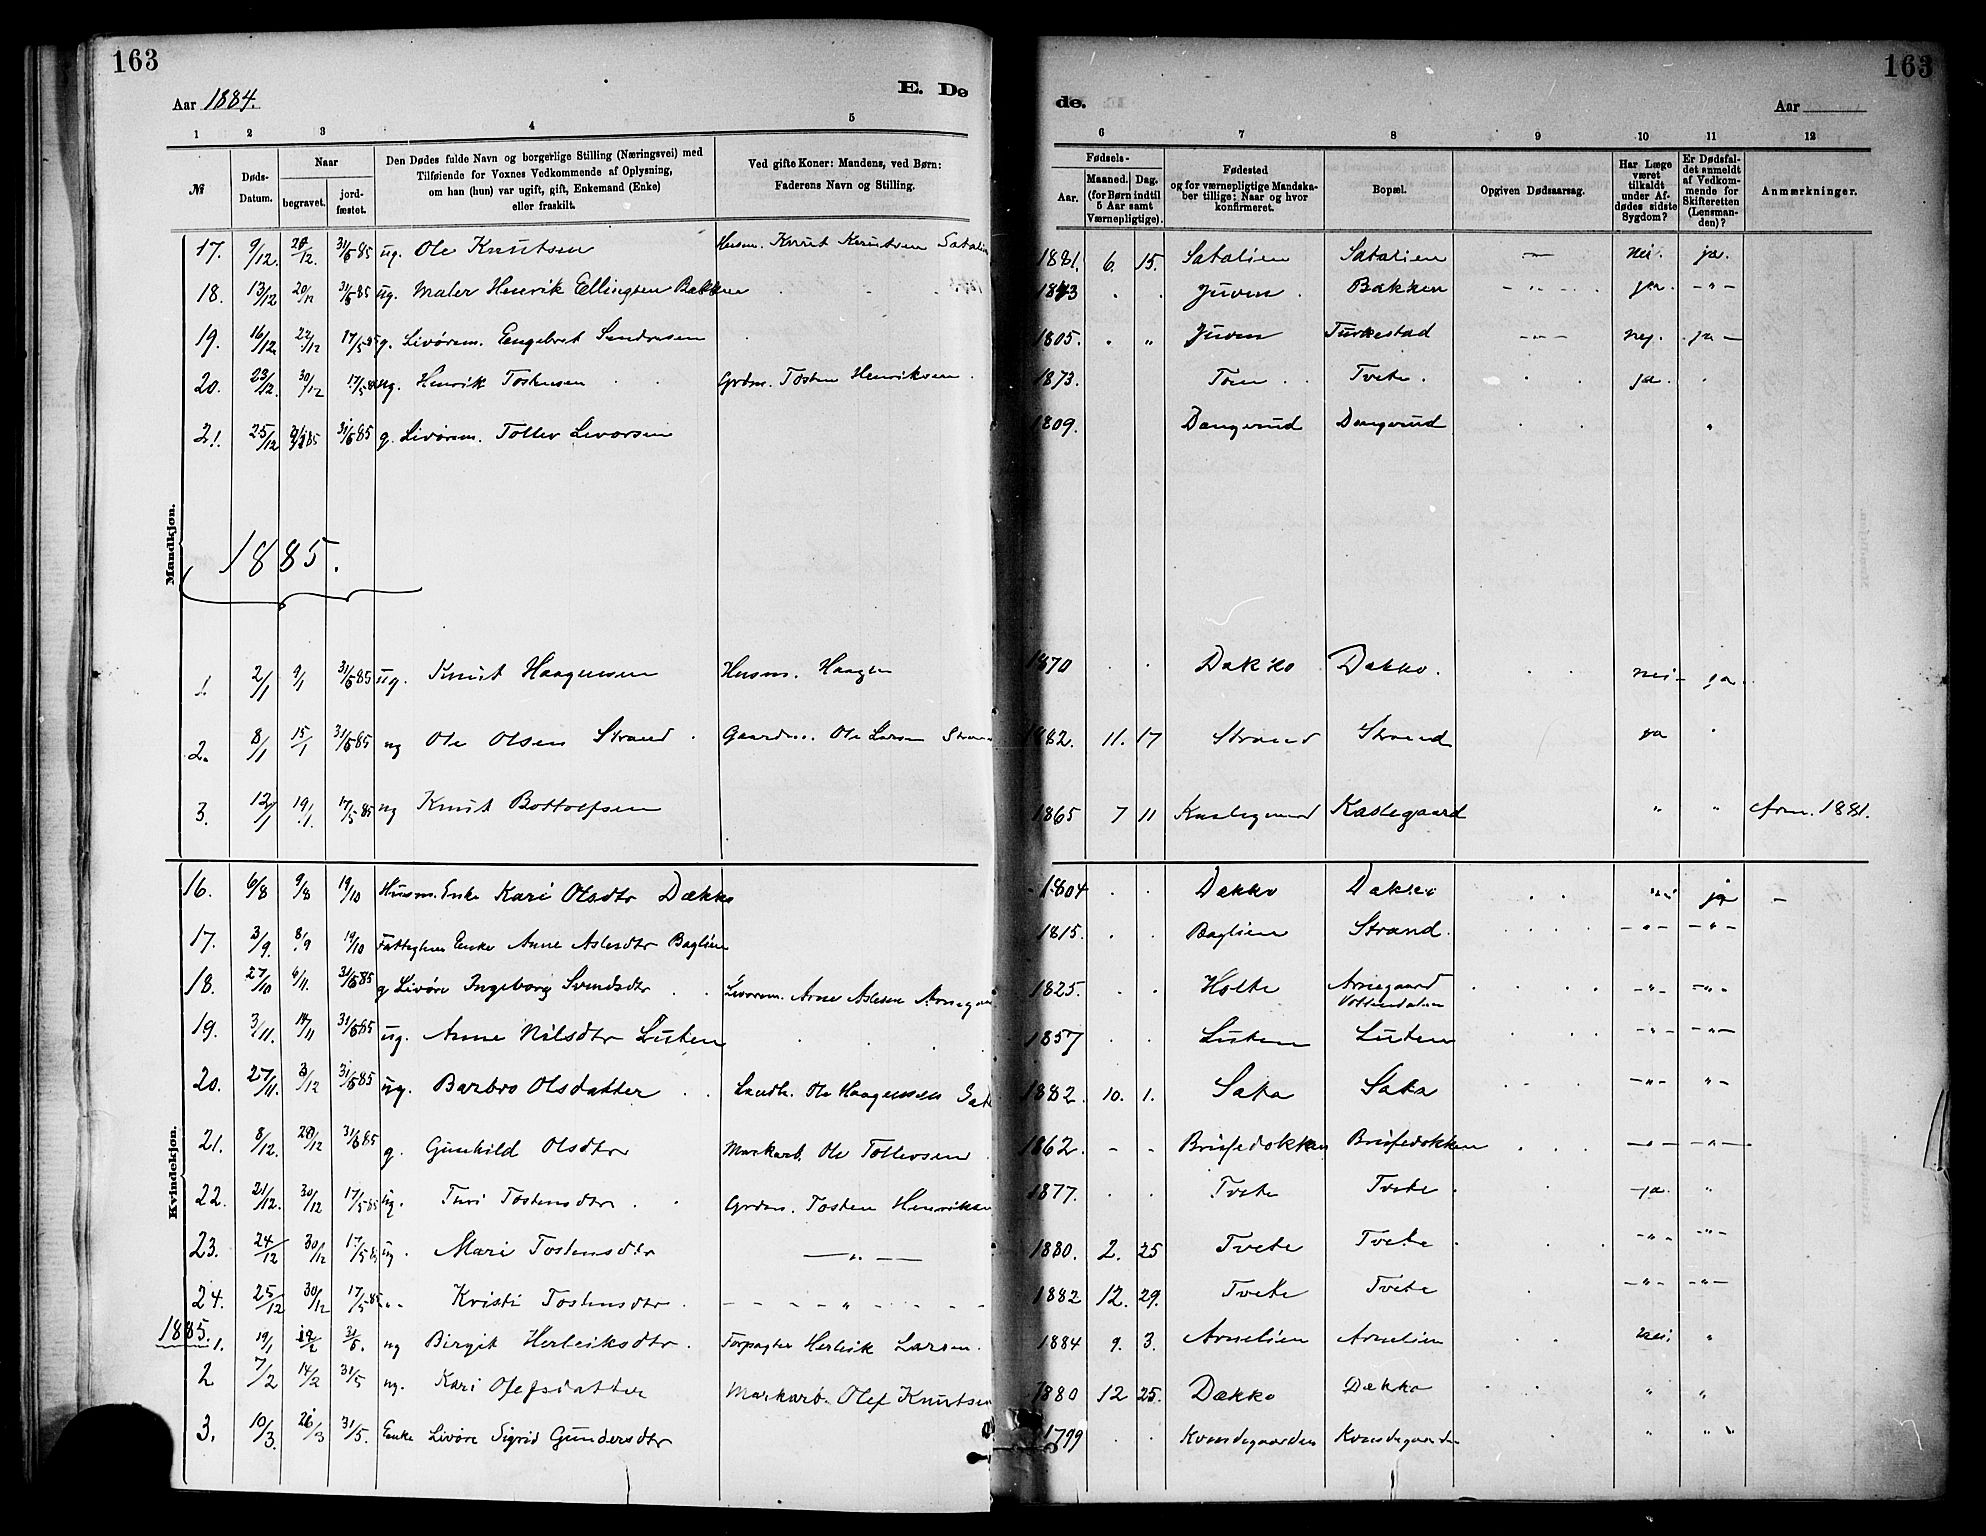 163
Aar 1884.
E. Dø
1 2 3 4 5
№
Døds-Datum.
Naar
begravet.
jord-fæstet.
Den Dødes fulde Navn og borgerlige Stilling (Næringsvei) med
Tilføiende for Voxnes Vedkommende af Oplysning,
om han (hun) var ugift, gift, Enkemand (Enke)
eller fraskilt.
Ved gifte Koner: Mandens, ved Børn:
Faderens Navn og Stilling.
Mandkjøn.
17. 9/12. 31/5 85 ug. Ole Knutsen Husm. Knut Knutsen Satalien
18. 13/12 20/12 31/5 85 ug. Maler Henrik Ellingsen Bakken
19. 16/12 22/12 17/5 85 g. Livørem. Engebret Sundresen
20. 23/12. 30/12 17/5 85 ug. Henrik Tostensen Grdm. Tosten Henriksen
21. 25/12 31/5 85 g. Livørem. Tollev Levorsen
1885.
1. 2/1 9/1 31/5 85 ug. Knut Haagensen Husm. Haagen
2. 8/1 15/1 31/5 85 ug Ole Olsen Strand. Gaardm. Ole Larsen
3. 12/1 19/1. 17/5 85 ug Knut Bottolfsen
Kvindekjøn.
16. 6/8 9/8 19/10 Husm. Enke Kari Olsdtr Dækko
17. 3/9. 8/9 19/10 Enke Anne Aslesdtr Baglien
18. 27/10 6/11. 31/5 85 g Livøre Ingeborg Svendsdtr Levorem. Arne Aslesen
19. 3/11. 14/11 31/5 85 ug. Anne Nilsdtr Luten
20. 27/11. 3/12 31/5 85 ug. Barbro Olsdatter Landh. Ole Haagensen
21. 8/12. 20/12 31/5 85 g. Gunhild Olsdtr Markarb. Ole Tollevsen
22. 21/12. 30/12 17/5 85 ug. Turi Tostensdtr Grdm. Tosten Henriksen
23. 24/12 30/12 17/5 85 ug. Mari Tostensdtr — " —
24. 25/12 30/12 17/5 85 " Kristi Tostensdtr. - - - " - - -
1885. 1. 19/1 31/5. ug Birgit Herleiksdtr. Forpagter Herleik Larsen.
2 7/2 14/2 31/5 ug. Kari Olefsdatter Markarb. Olef Knutsen
3. 10/3. 31/5. Enke Livøre Sigrid Gundersdtr
163
de.
Aar
6 7 8 9 10 11 12
Fødsels-
Aar.
Maaned. Dag.
(for Børn indtil
5 Aar samt
Værnepligtige).
Fødested
og for værnepligtige Mandska-
ber tillige: Naar og hvor
konfirmeret.
Bopæl.
Opgiven Dødsaarsag.
Har Læge
været
tilkaldt
under Af-
dødes sidste
Sygdom?
Er Dødsfal-
det anmeldt
af Vedkom-
mende for
Skifteretten
(Lensman-
den)?
Anmærkninger.
1881. 6. 15. Satalien Satalien — nei. ja.
1843 . . Juven. Bakken - " - ja. - " -
1805. . " Juven Turkestad - " - nej. ja —
1873. Toen Tvete. ja.
1809. Dangerud Dangerud "
1870 . . Dækko Dækko. nei - ja.
1882. 11. 17 Strand Strand ja
1865 7 11 Kaslegaard Kaslegaard " " 1881.
1804 . . Dækko Dækko ja -
1815. . . Baglien Strand. - " - - " -
1825. . . Holte Arnegaard - " - - " -
1857 . . Luten Luten - " - - " -
1882. 10. 1. Sata Sata - " - " -
1862. - - Briskedokken Briskedokken - " - - " -
1877. . . Tvete Tvete. - ja. "
1880. 2. 25 Tvete Tvete. - " - - " -
1882 12. 29. Tvete Tvete - " - - " -
1884 9. 3. Arnelien Arnelien nei. "
1880 12 25. Dækko Dækko " "
1799 . . Kvisdegaarden Kvisdegaarden " "